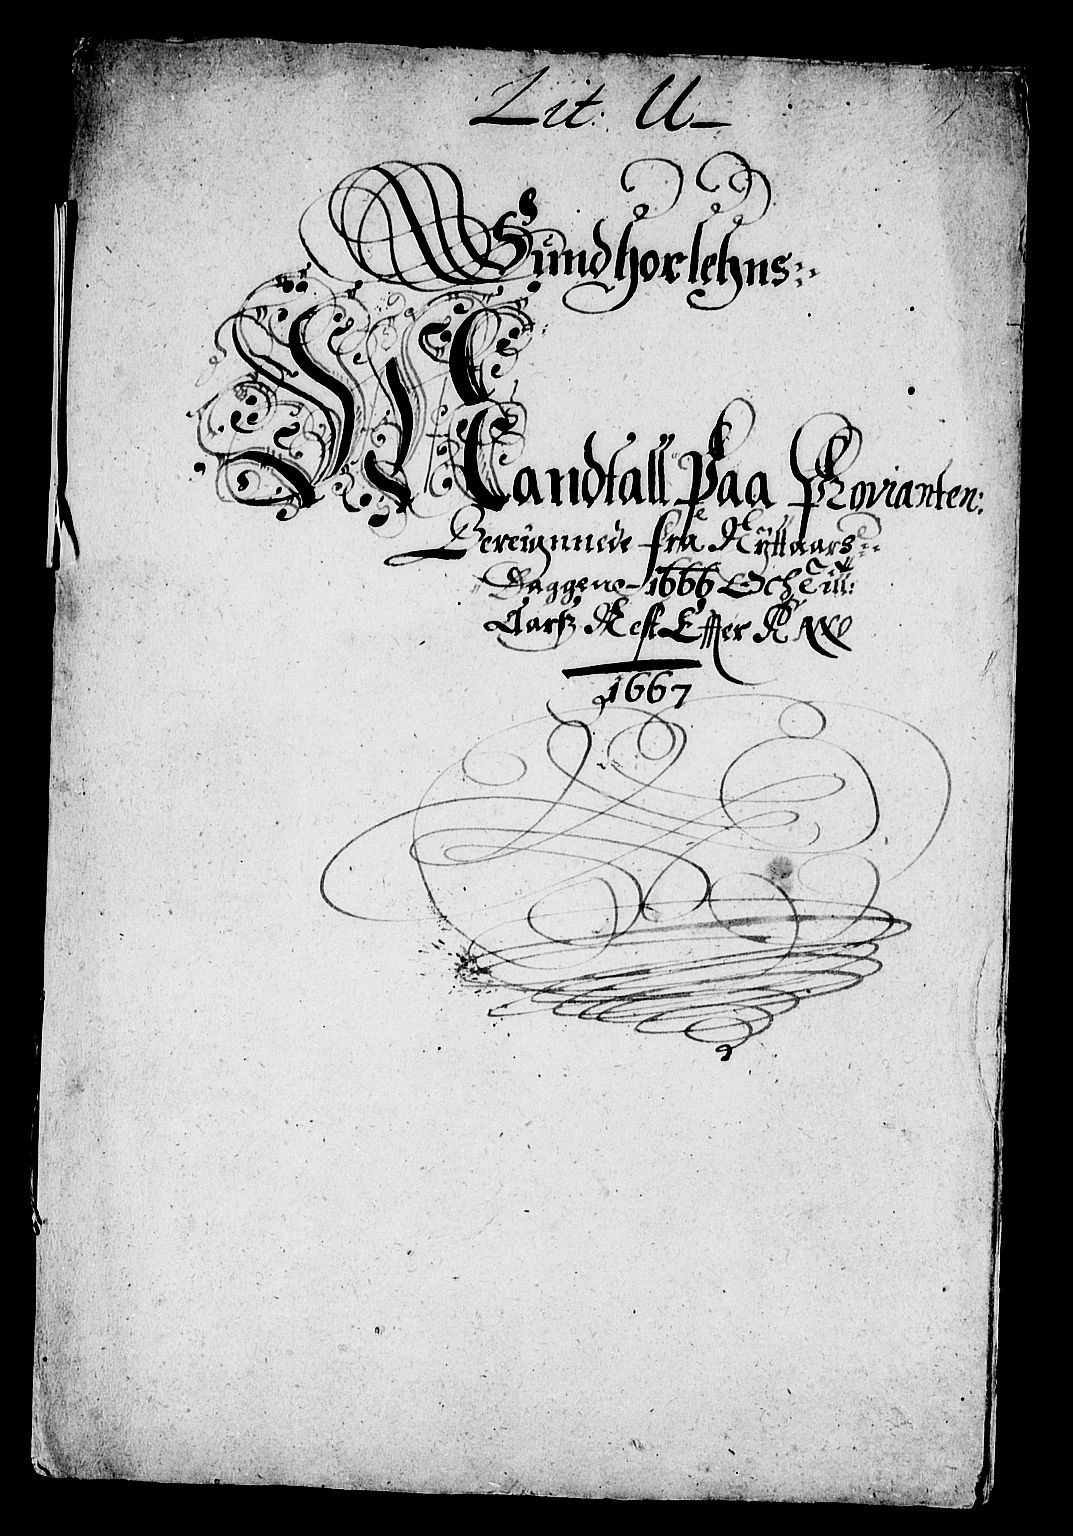 Lit: U
Sundhorlehns
Mandtall Paa Provianten:
Bereignnede fra Nÿttaars
Daggenn 1666 Och Till
Aars Nest Effter
1667